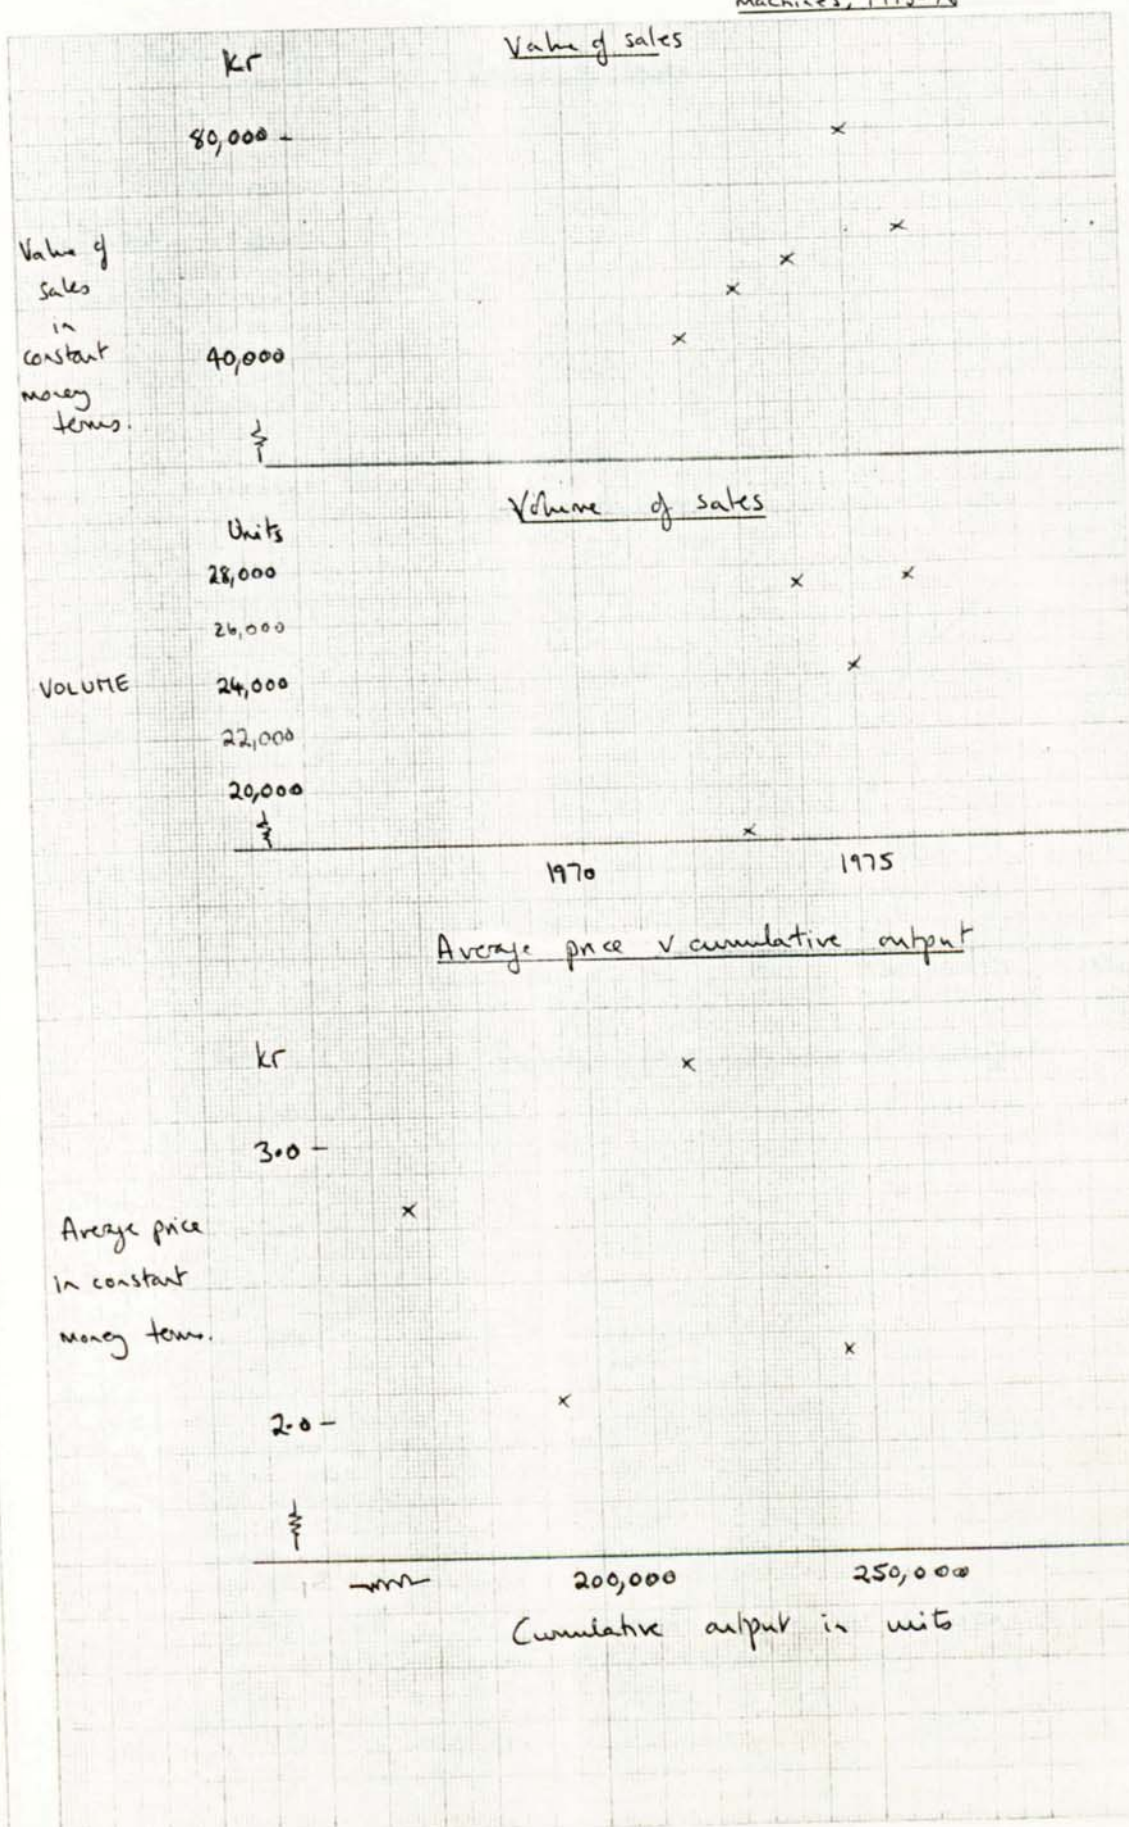 Machines,
Value of sales
kr
80,000
Value of
sales
in
constant
money
terms.
40,000
Volume of sales
Units
28,000
26,000
VOLUME
24,000
22,000
20,000
1970
1975
Average price v cumulative output
kr
3.0
Average price
in constant
money terms.
2.0
200,000
250,000
Cumulative output in units